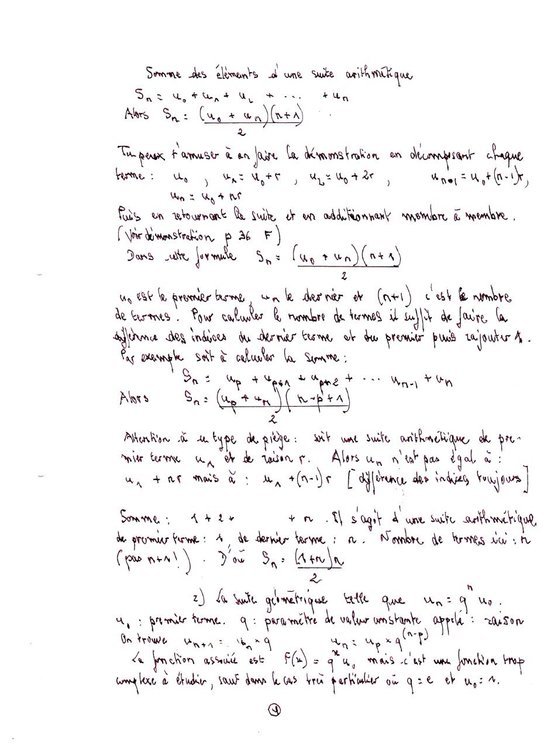 Somme des éléments d'une suite arithmétique
Sn = u0 + u1 + u2 + ... + un
Alors Sn = (u0 + un)(n+1)
2
Tu peux t'amuser à en faire la démonstration en décomposant chaque
terme : u0 , u1 = u0 + r , u2 = u0 + 2r , un-1 = u0 + (n-1)r,
un = u0 + nr
Puis en retournant la suite et en additionnant membre à membre.
(Voir démonstration p 36 F)
Dans cette formule Sn = (u0 + un)(n+1)
2
u0 est le premier terme, un le dernier et (n+1) c'est le nombre
de termes. Pour calculer le nombre de termes il suffit de faire la
différence des indices du dernier terme et du premier puis rajouter 1.
Par exemple soit à calculer la somme :
Sn = up + up+1 + up+2 + ... un-1 + un
Alors Sn = (up + un)(n-p+1)
2
Attention à ce type de piège : soit une suite arithmétique de pre-
mier terme u1 et de raison r. Alors un n'est pas égal à :
u1 + nr mais à : u1 + (n-1)r [différence des indices toujours]
Somme : 1 + 2 + + n. Il s'agit d'une suite arithmétique
de premier terme : 1, de dernier terme : n. Nombre de termes ici : n
(pas n+1!). D'où Sn = (1+n)n
2
2) La suite géométrique telle que un = q^n u0.
u0 : premier terme. q : paramètre de valeur constante appelé : raison
On trouve un+1 = un × q un = up × q^(n-p)
La fonction associée est f(x) = q^x u0 mais c'est une fonction trop
complexe à étudier, sauf dans le cas très particulier où q = e et u0 = 1.
4